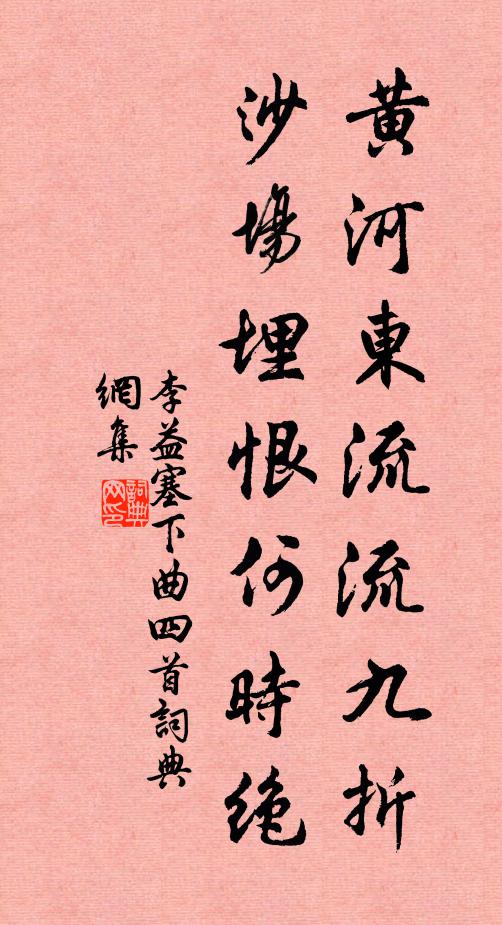 黃河東流流九折
沙場埋恨何時絕
李益塞下曲四首詞典
網集
詞典
网印